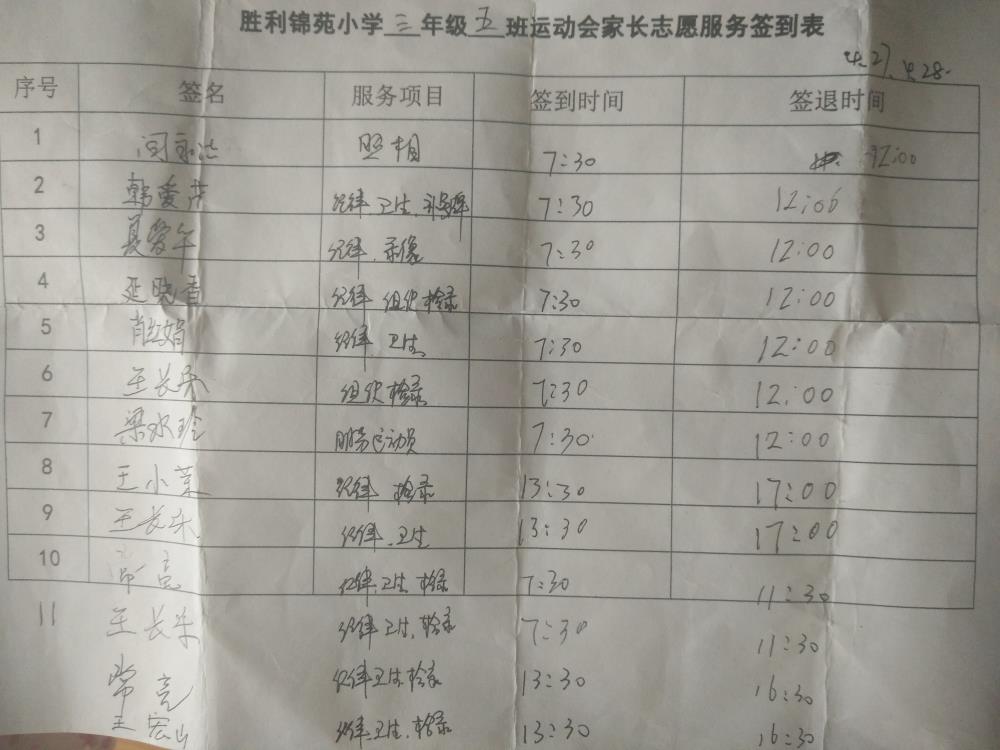 胜利锦苑小学三年级五班运动会家长志愿服务签到表
4.27、4.28.
序号 签名 服务项目 签到时间 签退时间
1 闫永 照相 7:30 12:00
2 韩爱芹 纪律.卫生. 7:30 12:06
3 夏爱午 纪律.录像 7:30 12:00
4 延晓香 纪律 组织检录 7:30 12:00
5 肖红娟 纪律.卫生 7:30 12:00
6 王长乐 组织检录 7:30 12:00
7 梁双玲 服务运动员 7:30 12:00
8 王小英 纪律 检录 13:30 17:00
9 王长乐 纪律.卫生 13:30 17:00
10 常亮 纪律.卫生.检录 7:30 11:30
11 王长乐 纪律.卫生.检录 7:30 11:30
常亮 纪律卫生.检录 13:30 16:30
王宏山 纪律.卫生.检录 13:30 16:30